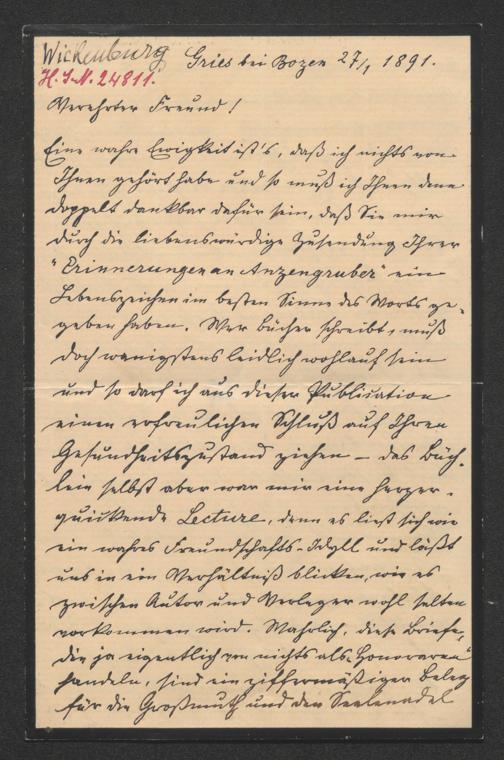 Wickenburg
Gries bei Bozen 27/1 1891.
H. I. N. 24811.
Verehrter Freund!
Eine wahre Ewigkeit ist's, daß ich nichts von
Ihnen gehört habe und so muß ich Ihnen denn
doppelt dankbar dafür sein, daß Sie mir
durch die liebenswürdige Zusendung Ihrer
"Erinnerungen an Anzengruber" ein
Lebenszeichen im besten Sinne des Worts ge-
geben haben. Wer Bücher schreibt, muß
doch wenigstens leidlich wohlauf sein
und so darf ich aus dieser Publication
einen erfreulichen Schluß auf Ihren
Gesundheitszustand ziehen – das Büch-
lein selbst aber war mir eine herzer-
quickende Lecture, denn es liest sich wie
ein wahres Freundschafts-Idyll und läßt
uns in ein Verhältniß blicken, wie es
zwischen Autor und Verleger wohl selten
vorkommen wird. Wahrlich, diese Briefe,
die ja eigentlich von nichts als "Honoraren"
handeln, sind ein ziffermäßiger Beleg
für die Großmuth und den Seelenadel